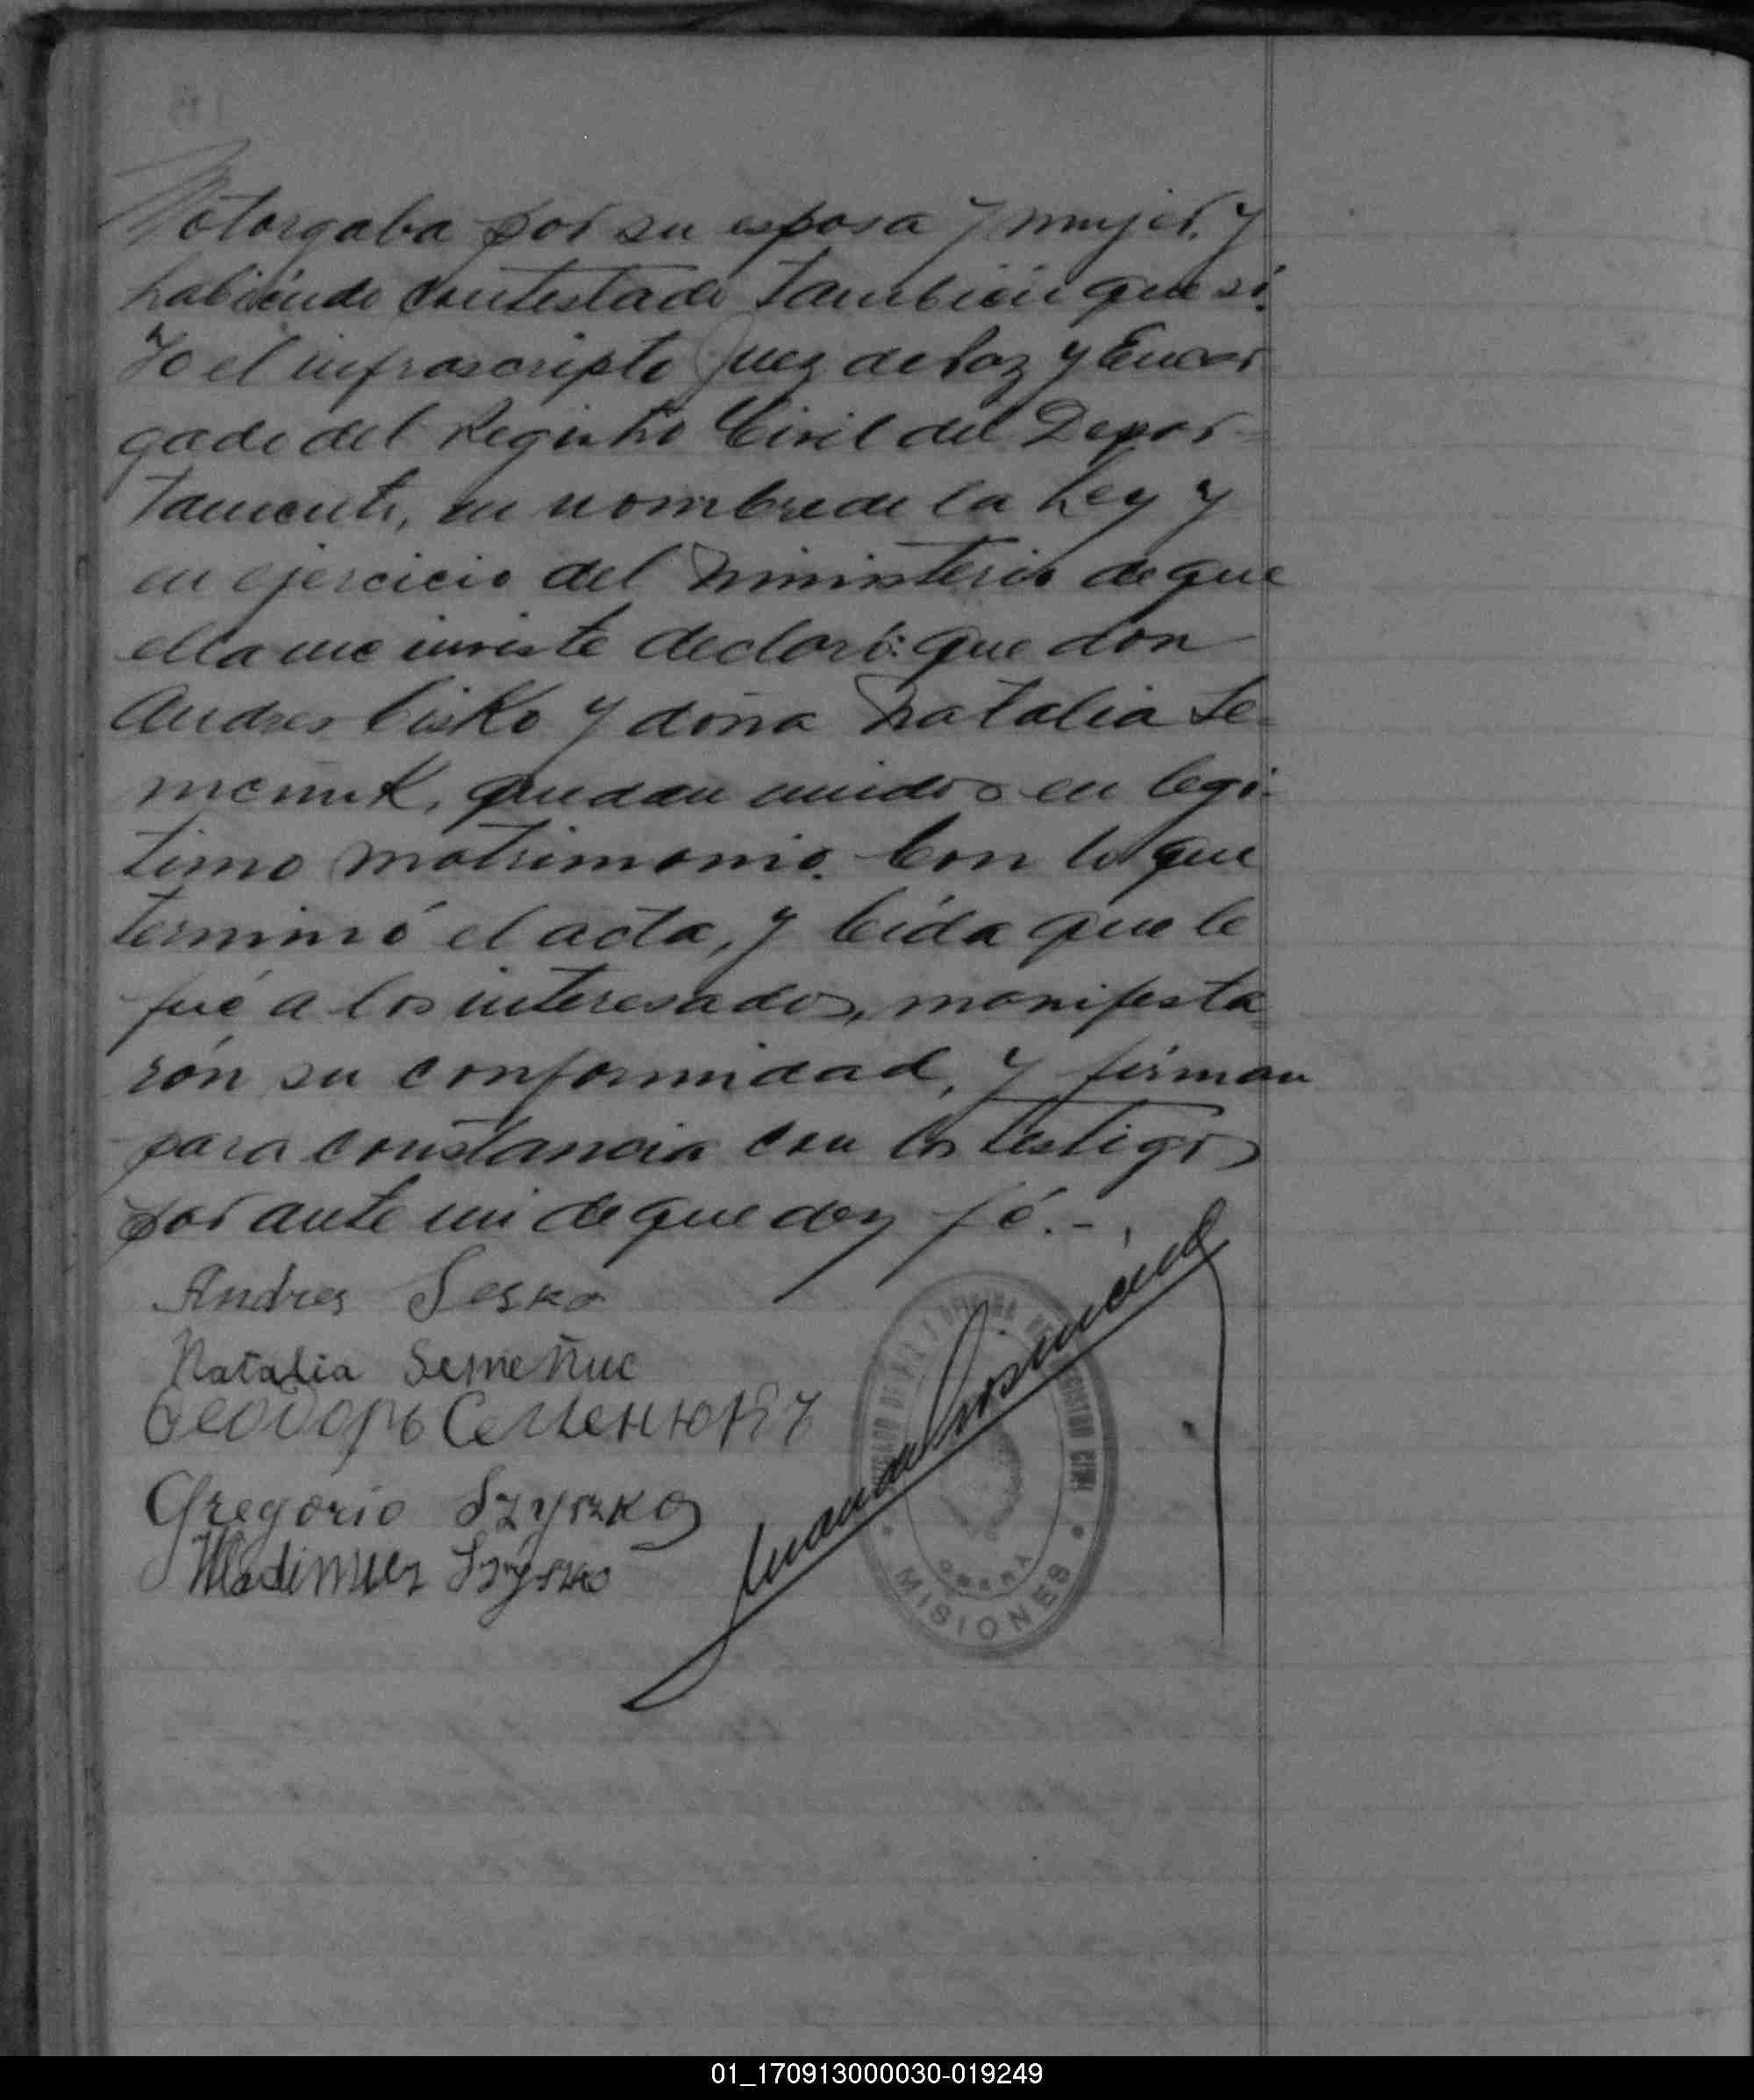 y otorgaba por su esposa y mujer, y
habiendo contestado también que sí.
Yo el infrascripto Juez de Paz y Encar
gado del Registro Civil del Depar-
tamento, en nombre de la Ley y
en ejercicio del ministerio de que
ella me inviste declaré: que don
Andres Cisko y doña Natalia Se-
menuk, quedan unidos en legí-
timo matrimonio. Con lo que
terminó el acta, y leída que le
fué a los interesados, manifesta
ron su conformidad, y firman
para constancia con los testigos
por ante mi de que doy fé.-
Andres Sesko
Natalia Semeñuc
Ѳеодоръ Семенюкъ
Gregorio Szyszko
Wladimier Szyszko
REGISTRO CIVIL
OBERA
MISIONES
01_170913000030-019249